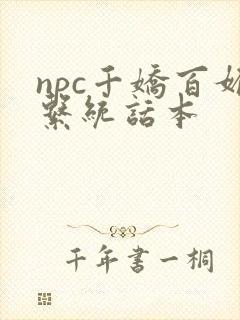 npc千嬌百
繫統話本
千年書一桐